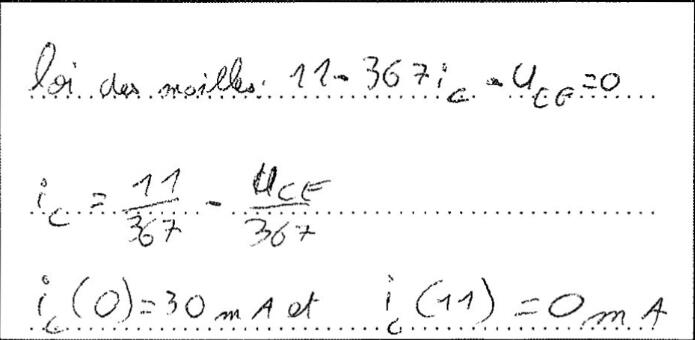 loi des mailles: 11 - 367 i_C - U_CE = 0
i_C = 11/367 - U_CE/367
i_C(0) = 30 mA et i_C(11) = 0 mA